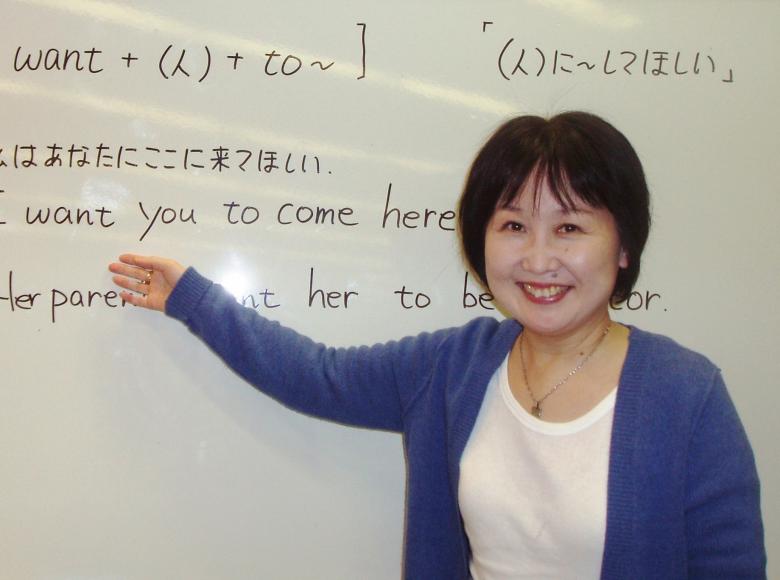 want + (人) + to~ ] 「(人)に~してほしい」
はあなたにここに来てほしい.
I want you to come here
Her her to be